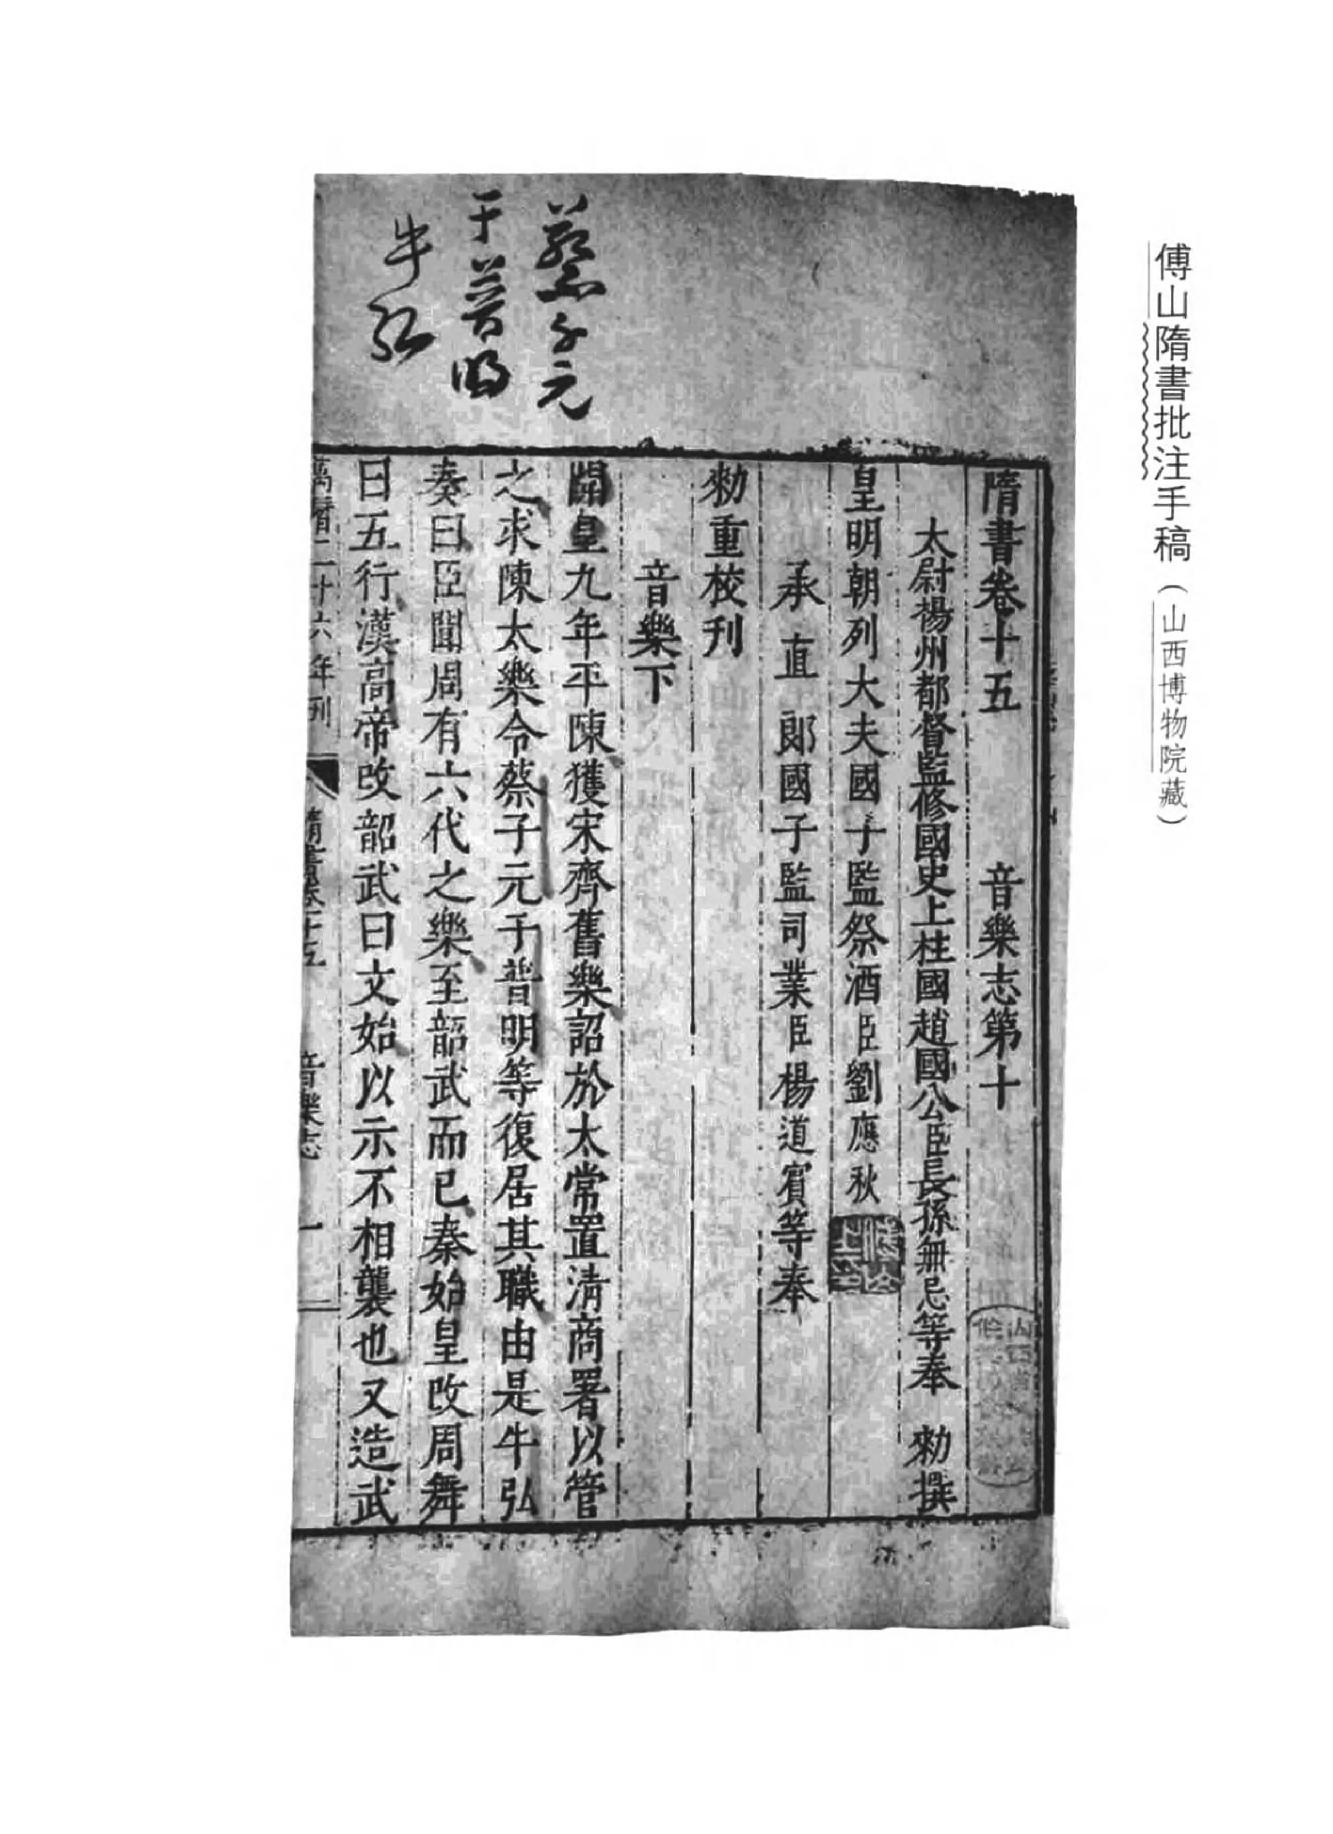 傅山隋書批注手稿（山西博物院藏）
蔡子元
于普明
牛弘
隋書卷十五 音樂志第十
太尉楊州都督監修國史上柱國趙國公臣長孫無忌等奉 勑撰
皇明朝列大夫國子監祭酒臣劉應秋
承直郎國子監司業臣楊道賓等奉
勑重校刊
音樂下
開皇九年平陳獲宋齊舊樂詔於太常置清商署以管
之求陳太樂令蔡子元于普明等復居其職由是牛弘
奏曰臣聞周有六代之樂至韶武而已秦始皇改周舞
曰五行漢高帝改韶武曰文始以示不相襲也又造武
萬曆二十六年刊 隋書卷十五 音樂志 一